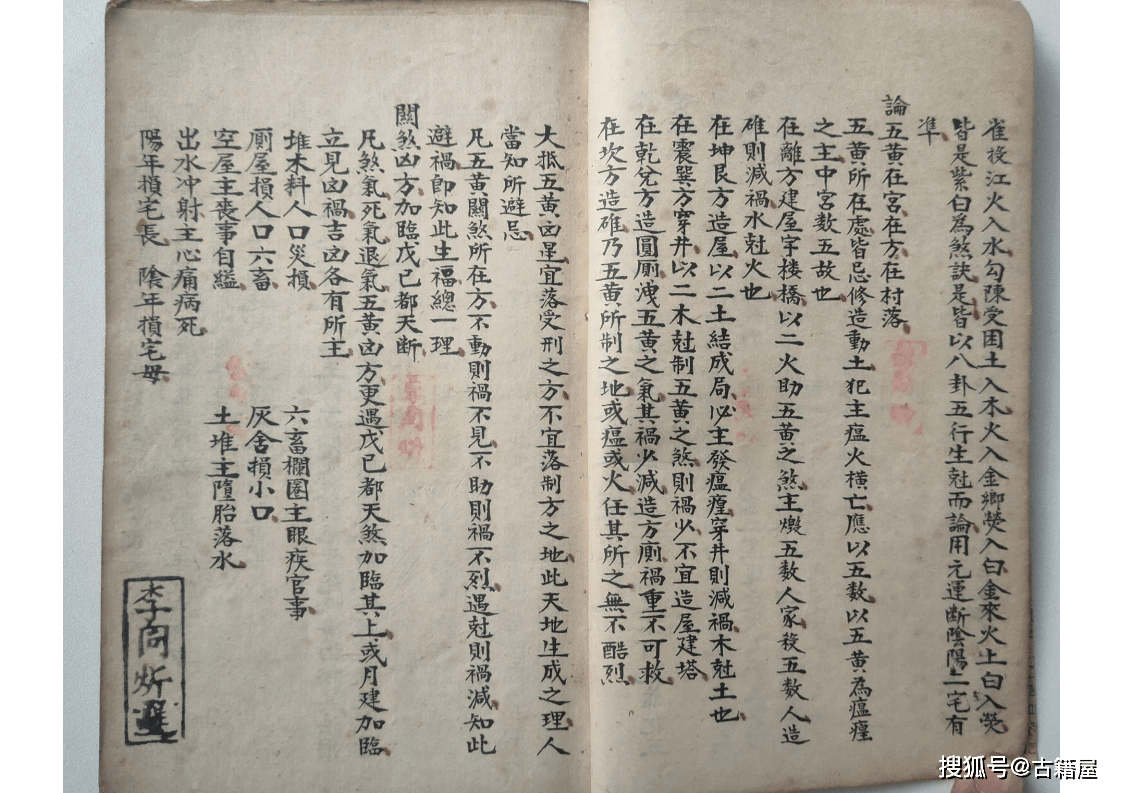 雀投江火入水勾陳受困土入木火入金鄉熒入白金來火土白入熒
皆是紫白為煞訣是皆以八卦五行生尅而論用元運断陰陽二宅有
準
論五黃在宮在方在村落
五黃所在處皆忌修造動土犯主瘟火横亡應以五数以五黃為瘟㾮
之主中宮数五故也
在離方建屋宇楼橋以二火助五黃之煞主燬五数人家殺五数人造
碓則減禍水尅火也
在坤艮方造屋以二土結成局必主發瘟㾮穿井則減禍木尅土也
在震巽方穿井以二木尅制五黃之煞則禍少不宜造屋建塔
在乾兌方造圓厠洩五黃之氣其禍少減造方厠禍重不可救
在坎方造碓乃五黃所制之地或瘟或火任其所之無不酷烈
大抵五黃凶星宜落受刑之方不宜落制方之地此天地生成之理人
當知所避忌
凡五黃關煞所在方不動則禍不見不助則禍不烈遇尅則禍減知此
避禍即知此生福總一理
關煞凶方加臨戊已都天断
凡煞氣死氣退氣五黃凶方更遇戊已都天煞加臨其上或月建加臨
立見凶禍吉凶各有所主
堆木料人口災損 六畜欄圈主眼疾官事
厠屋損人口六畜 灰舍損小口
空屋主喪事自縊 土堆主墮胎落水
出水冲射主心痛病死
陽年損宅長 陰年損宅母
李向炘選
搜狐号@古籍屋